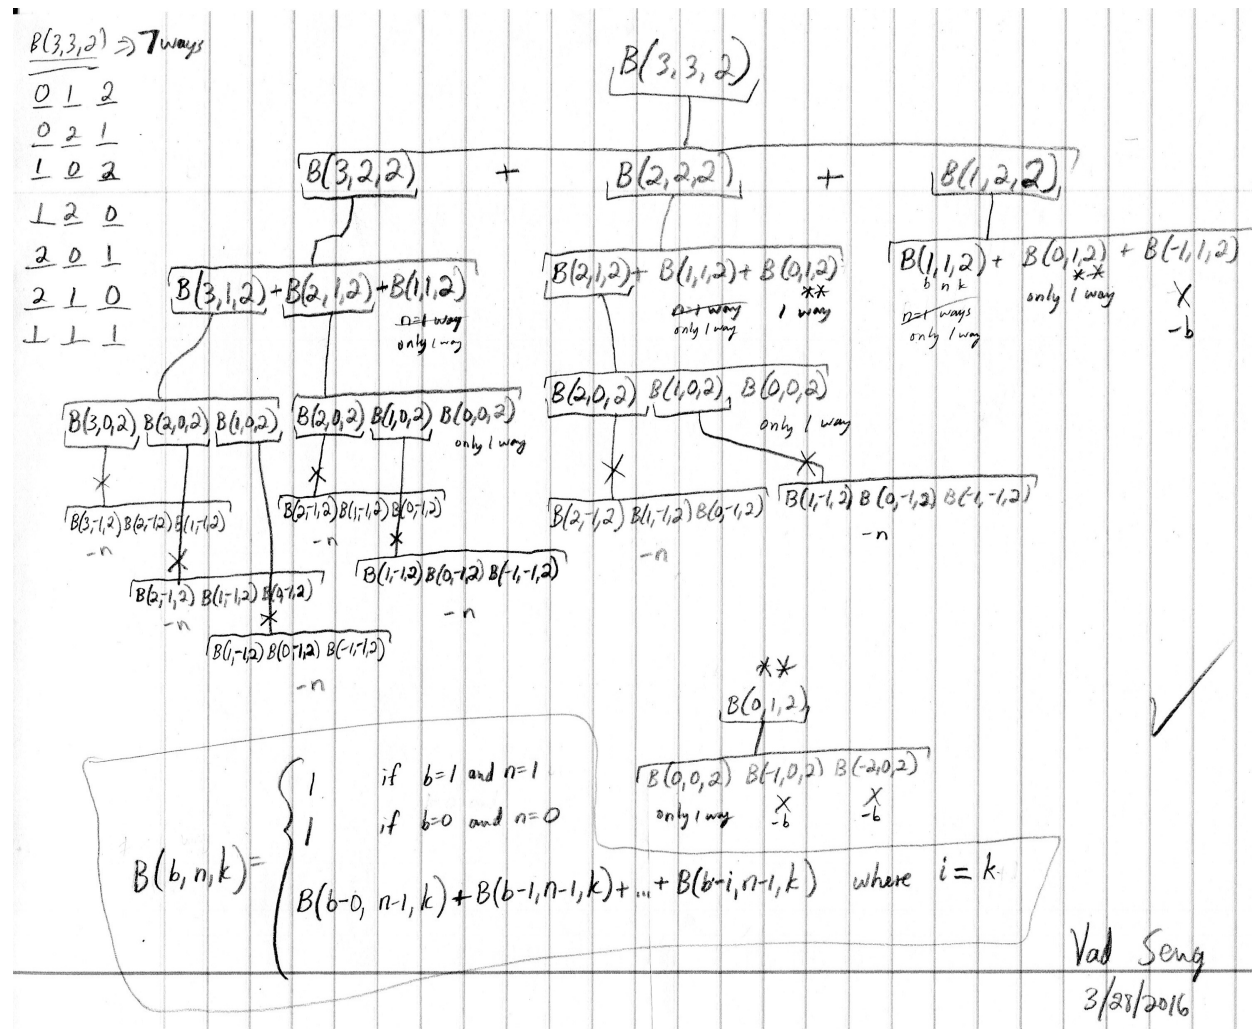 B(3,3,2) ⇒ 7 ways
0 1 2
0 2 1
1 0 2
1 2 0
2 0 1
2 1 0
1 1 1
B(3,3,2)
B(3,2,2) + B(2,2,2) + B(1,2,2)
B(3,1,2) + B(2,1,2) + B(1,1,2)
n=1 way
only 1 way
B(2,1,2) + B(1,1,2) + B(0,1,2)
**
n=1 way
only 1 way
1 way
B(1,1,2) + B(0,1,2) + B(-1,1,2)
b n k
**
n=1 ways
only 1 way
only 1 way
X
-b
B(3,0,2) B(2,0,2) B(1,0,2)
B(2,0,2) B(1,0,2) B(0,0,2)
only 1 way
B(2,0,2) B(1,0,2) B(0,0,2)
only 1 way
B(3,-1,2) B(2,-1,2) B(1,-1,2)
-n
B(2,-1,2) B(1,-1,2) B(0,-1,2)
-n
B(2,-1,2) B(1,-1,2) B(0,-1,2)
-n
B(1,-1,2) B(0,-1,2) B(-1,-1,2)
-n
B(2,-1,2) B(1,-1,2) B(0,-1,2)
-n
B(1,-1,2) B(0,-1,2) B(-1,-1,2)
-n
B(1,-1,2) B(0,-1,2) B(-1,-1,2)
-n
**
B(0,1,2)
B(0,0,2) B(-1,0,2) B(-2,0,2)
only 1 way
X
-b
X
-b
1 if b=1 and n=1
1 if b=0 and n=0
B(b,n,k)=
B(b-0, n-1, k) + B(b-1, n-1, k) + ... + B(b-i, n-1, k) where i = k
Vad Seng
3/28/2016